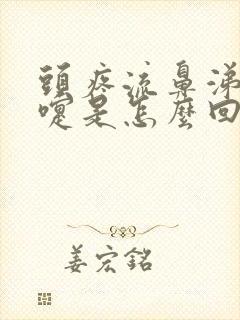 頭疼流鼻涕
嚏是怎麼回
姜宏銘